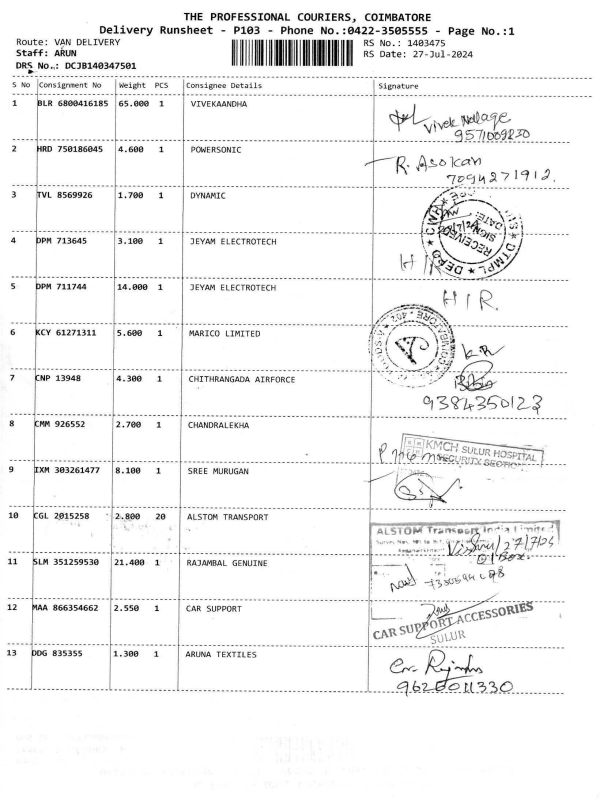 THE PROFESSIONAL COURIERS, COIMBATORE
Delivery Runsheet - P103 - Phone No.:0422-3505555 - Page No.:1
Route: VAN DELIVERY
RS No.: 1403475
Staff: ARUN
RS Date: 27-Jul-2024
DRS No.: DCJB140347501
S No Consignment No Weight PCS Consignee Details Signature
1 BLR 6800416185 65.000 1 VIVEKAANDHA
2 HRD 750186045 4.600 1 POWERSONIC
R. Asokan
7094271912.
3 TVL 8569926 1.700 1 DYNAMIC
4 DPM 713645 3.100 1 JEYAM ELECTROTECH
5 DPM 711744 14.000 1 JEYAM ELECTROTECH
HIR.
6 KCY 61271311 5.600 1 MARICO LIMITED
7 CNP 13948 4.300 1 CHITHRANGADA AIRFORCE
9384350123
8 CMM 926552 2.700 1 CHANDRALEKHA
KMCH SULUR HOSPITAL
SECURITY SECTION
9 IXM 303261477 8.100 1 SREE MURUGAN
10 CGL 2015258 2.800 20 ALSTOM TRANSPORT
ALSTOM Transport India Limited
27/7/24
11 SLM 351259530 21.400 1 RAJAMBAL GENUINE
12 MAA 866354662 2.550 1 CAR SUPPORT
CAR SUPPORT ACCESSORIES
SULUR
13 DDG 835355 1.300 1 ARUNA TEXTILES
9620011330